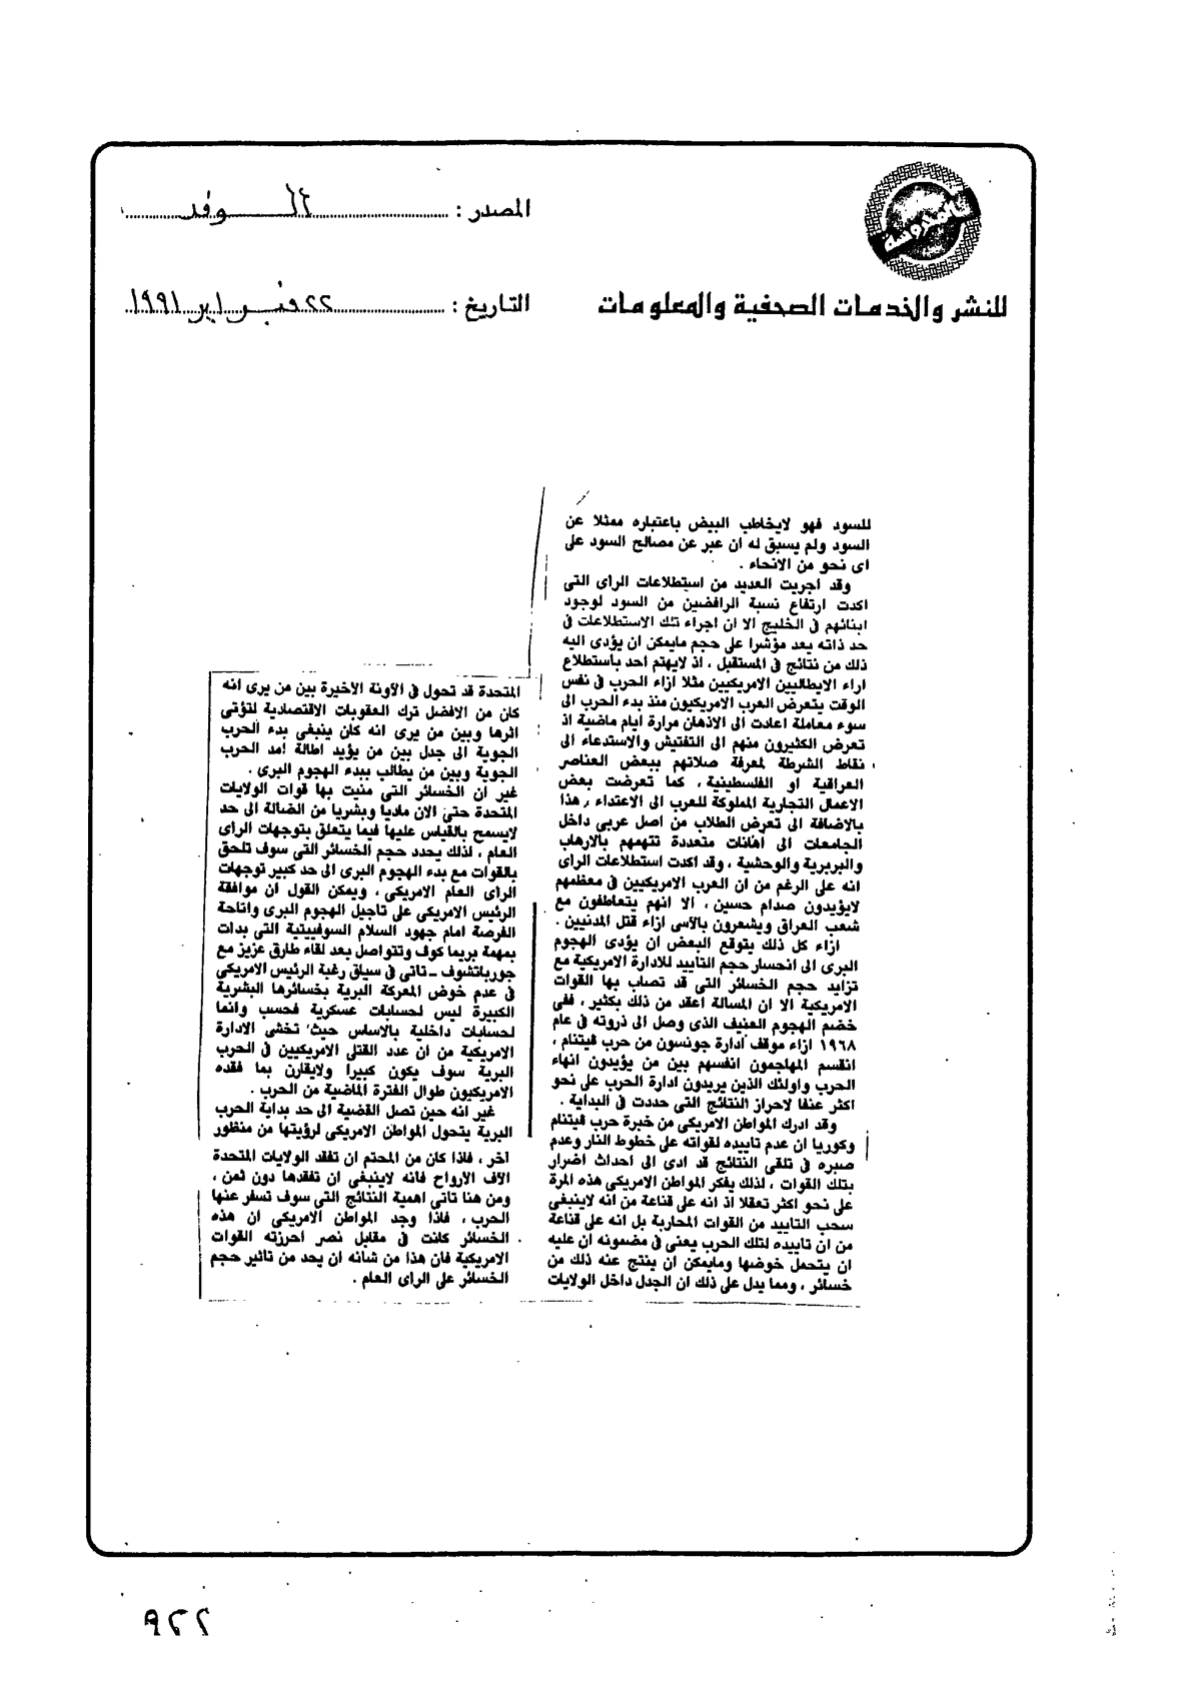 المصدر : الوفد
للنشر والخدمات الصحفية والمعلومات
التاريخ : ٢٢ فبراير ١٩٩١
للسود فهو لايخاطب البيض باعتباره ممثلا عن
السود ولم يسبق له ان عبر عن مصالح السود على
اى نحو من الانحاء .
وقد اجريت العديد من استطلاعات الراى التى
اكدت ارتفاع نسبة الرافضين من السود لوجود
ابنائهم فى الخليج الا ان اجراء تلك الاستطلاعات فى
حد ذاته يعد مؤشرا على حجم مايمكن ان يؤدى اليه
ذلك من نتائج فى المستقبل ، اذ لايهتم احد بأستطلاع
اراء الايطاليين الامريكيين مثلا ازاء الحرب فى نفس
الوقت يتعرض العرب الامريكيون منذ بدء الحرب الى
سوء معاملة اعادت الى الاذهان مرارة ايام ماضية اذ
تعرض الكثيرون منهم الى التفتيش والاستدعاء الى
نقاط الشرطة لمعرفة صلاتهم ببعض العناصر
العراقية او الفلسطينية ، كما تعرضت بعض
الاعمال التجارية المملوكة للعرب الى الاعتداء ، هذا
بالاضافة الى تعرض الطلاب من اصل عربى داخل
الجامعات الى اهانات متعددة تتهمهم بالارهاب
والبربرية والوحشية ، وقد اكدت استطلاعات الراى
انه على الرغم من ان العرب الامريكيين فى معظمهم
لايؤيدون صدام حسين ، الا انهم يتعاطفون مع
شعب العراق ويشعرون بالأسى ازاء قتل المدنيين .
ازاء كل ذلك يتوقع البعض ان يؤدى الهجوم
البرى الى انحسار حجم التاييد للادارة الامريكية مع
تزايد حجم الخسائر التى قد تصاب بها القوات
الامريكية الا ان المسالة اعقد من ذلك بكثير ، ففى
خضم الهجوم العنيف الذى وصل الى ذروته فى عام
١٩٦٨ ازاء موقف ادارة جونسون من حرب فيتنام ،
انقسم المهاجمون انفسهم بين من يؤيدون انهاء
الحرب واولئك الذين يريدون ادارة الحرب على نحو
اكثر عنفا لاحراز النتائج التى حددت فى البداية .
وقد ادرك المواطن الامريكى من خبرة حرب فيتنام
وكوريا ان عدم تاييده لقواته على خطوط النار وعدم
صبره فى تلقى النتائج قد ادى الى احداث اضرار
بتلك القوات ، لذلك يفكر المواطن الامريكى هذه المرة
على نحو اكثر تعقلا اذ انه على قناعة من انه لاينبغى
سحب التاييد من القوات المحاربة بل انه على قناعة
من ان تاييده لتلك الحرب يعنى فى مضمونه ان عليه
ان يتحمل خوضها ومايمكن ان ينتج عنه ذلك من
خسائر ، ومما يدل على ذلك ان الجدل داخل الولايات
المتحدة قد تحول فى الأونة الأخيرة بين من يرى انه
كان من الافضل ترك العقوبات الاقتصادية لتؤتى
اثرها وبين من يرى انه كان ينبغى بدء الحرب
الجوية الى جدل بين من يؤيد اطالة امد الحرب
الجوية وبين من يطالب ببدء الهجوم البرى .
غير ان الخسائر التى منيت بها قوات الولايات
المتحدة حتى الان ماديا وبشريا من الضالة الى حد
لايسمح بالقياس عليها فيما يتعلق بتوجهات الراى
العام ، لذلك يحدد حجم الخسائر التى سوف تلحق
بالقوات مع بدء الهجوم البرى الى حد كبير توجهات
الراى العام الامريكى ، ويمكن القول ان موافقة
الرئيس الامريكى على تاجيل الهجوم البرى واتاحة
الفرصة امام جهود السلام السوفييتية التى بدات
بمهمة بريماكوف وتتواصل بعد لقاء طارق عزيز مع
جورباتشوف - تاتى فى سياق رغبة الرئيس الامريكى
فى عدم خوض المعركة البرية بخسائرها البشرية
الكبيرة ليس لحسابات عسكرية فحسب وانما
لحسابات داخلية بالاساس حيث تخشى الادارة
الامريكية من ان عدد القتلى الامريكيين فى الحرب
البرية سوف يكون كبيرا ولايقارن بما فقده
الامريكيون طوال الفترة الماضية من الحرب .
غير انه حين تصل القضية الى حد بداية الحرب
البرية يتحول المواطن الامريكى لرؤيتها من منظور
آخر ، فاذا كان من المحتم ان تفقد الولايات المتحدة
آلاف الأرواح فانه لاينبغى ان تفقدها دون ثمن ،
ومن هنا تاتى اهمية النتائج التى سوف تسفر عنها
الحرب ، فاذا وجد المواطن الامريكى ان هذه
الخسائر كانت فى مقابل نصر احرزته القوات
الامريكية فان هذا من شانه ان يحد من تاثير حجم
الخسائر على الراى العام .
٩٢٢